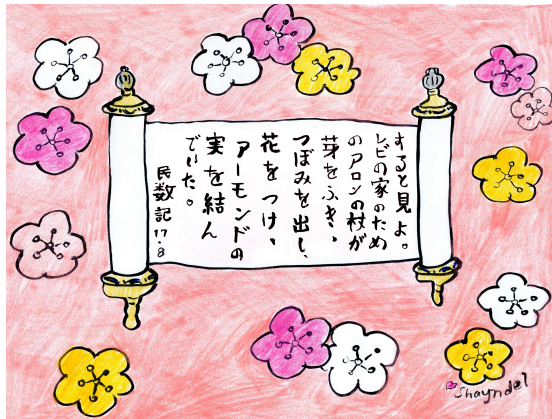 すると見よ。
レビの家のため
のアロンの杖が
芽をふき、
つぼみを出し、
花をつけ、
アーモンドの
実を結ん
でいた。
民数記17・8
Shayndel